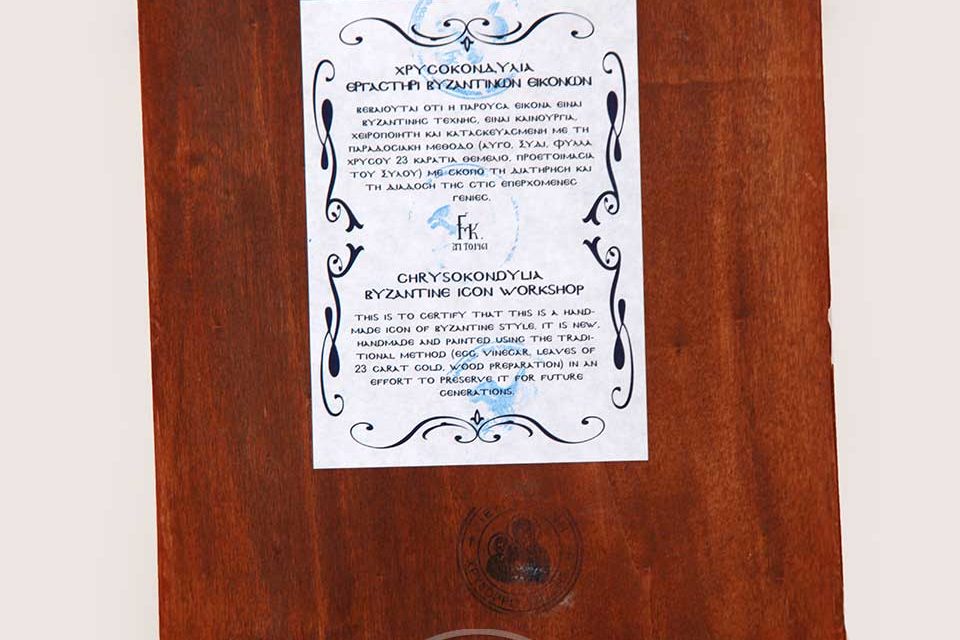 ΧΡΥСΟΚΟΝΔΥΛΙΑ
ΕΡΓΑСΤΗΡΙ ΒΥΖΑΝΤΙΝΩΝ ΕΙΚΟΝΩΝ
ΒΕΒΑΙΟΥΤΑΙ ΟΤΙ Η ΠΑΡΟΥСΑ ΕΙΚΟΝΑ ΕΙΝΑΙ
ΒΥΖΑΝΤΙΝΗС ΤΕΧΝΗС, ΕΙΝΑΙ ΚΑΙΝΟΥΡΓΙΑ,
ΧΕΙΡΟΠΟΙΗΤΗ ΚΑΙ ΚΑΤΑСΚΕΥΑСΜΕΝΗ ΜΕ ΤΗ
ΠΑΡΑΔΟСΙΑΚΗ ΜΕΘΟΔΟ (ΑΥΓΟ, ΞΥΔΙ, ΦΥΛΛΑ
ΧΡΥСΟΥ 23 ΚΑΡΑΤΙΑ ΘΕΜΕΛΙΟ, ΠΡΟΕΤΟΙΜΑСΙΑ
ΤΟΥ ΞΥΛΟΥ) ΜΕ СΚΟΠΟ ΤΗ ΔΙΑΤΗΡΗСΗ ΚΑΙ
ΤΗ ΔΙΑΔΟСΗ ΤΗС СΤΙС ΕΠΕΡΧΟΜΕΝΕС
ΓΕΝΙΕС.
CHRYSOKONDYLIA
BYZANTINE ICON WORKSHOP
THIS IS TO CERTIFY THAT THIS IS A HAND-
MADE ICON OF BYZANTINE STYLE. IT IS NEW,
HANDMADE AND PAINTED USING THE TRADI-
TIONAL METHOD (EGG, VINEGAR, LEAVES OF
23 CARAT GOLD, WOOD PREPARATION) IN AN
EFFORT TO PRESERVE IT FOR FUTURE
GENERATIONS.